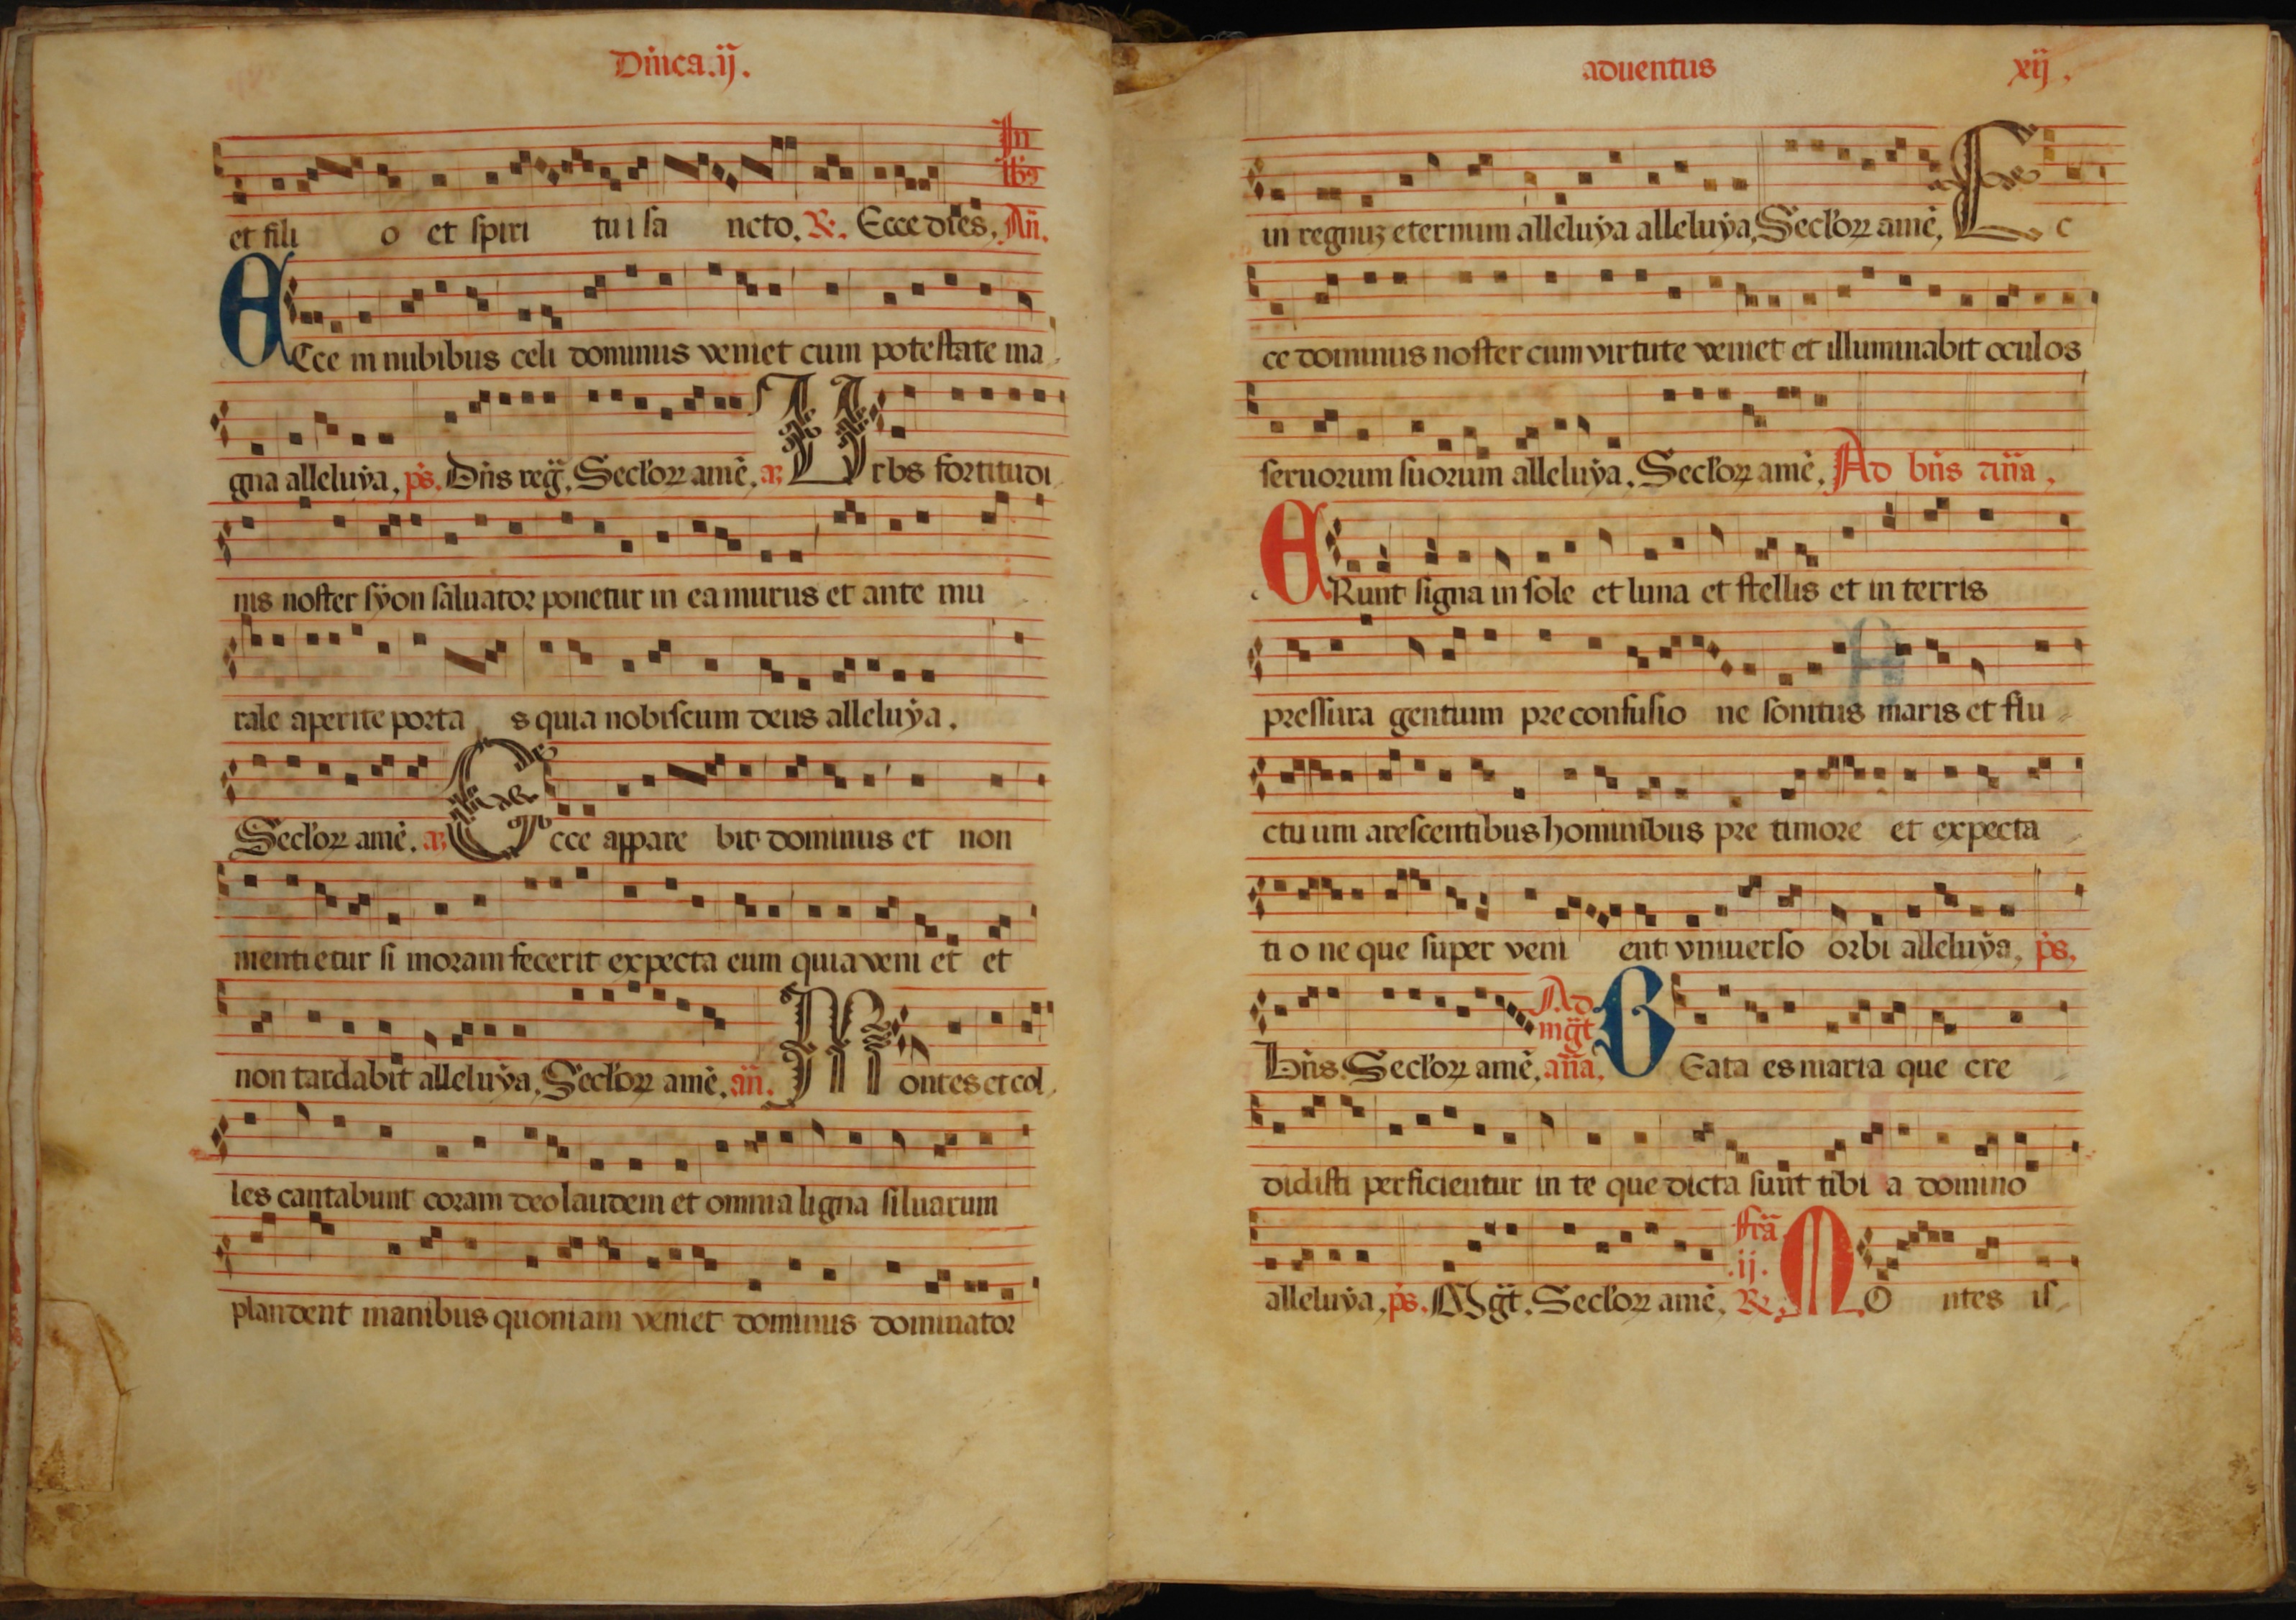 Dñica.ij.
In
lb9
et fili o et spiri tui sa ncto. ℟. Ecce dies. Añ.
ECce in nubibus celi dominus veniet cum potestate ma
gna alleluya. ps. Dñs reg. Seclꝝ amē. a Urbs fortitudi
nis noster syon saluator ponetur in ea murus et ante mu
rale aperite porta s quia nobiscum deus alleluya.
Seclꝝ amē. a Ecce appare bit dominus et non
mentietur si moram fecerit expecta eum quia veni et et
non tardabit alleluya. Seclꝝ amē. añ. Montes et col
les cantabunt coram deo laudem et omnia ligna siluarum
plaudent manibus quoniam veniet dominus dominator
aduentus xij.
in regnuȝ eternum alleluya alleluya. Seclꝝ amē. Ec
ce dominus noster cum virtute veniet et illuminabit oculos
seruorum suorum alleluya. Seclꝝ amē. Ad bñs
ERunt signa in sole et luna et stellis et in terris
pressura gentium pre confusio ne sonitus maris et flu
ctu um arescentibus hominibus pre timore et expecta
ti o ne que super veni ent vniuerso orbi alleluya. ps.
Bñs. Seclꝝ amē. Ad mgt aña. BEata es maria que cre
didisti perficientur in te que dicta sunt tibi a domino
alleluya. ps. Mgt. Seclꝝ amē. fra ij. ℟. MOntes is